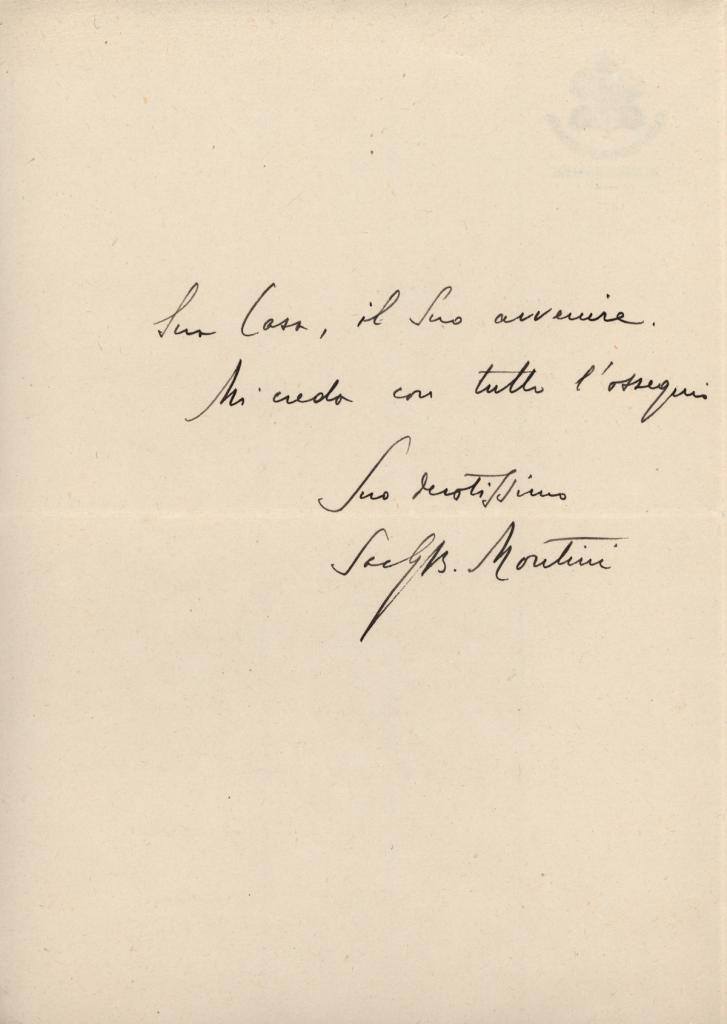 Sua Casa, il Suo avvenire.
Mi creda con tutto l'ossequio
Suo devotissimo
Sac GB. Montini